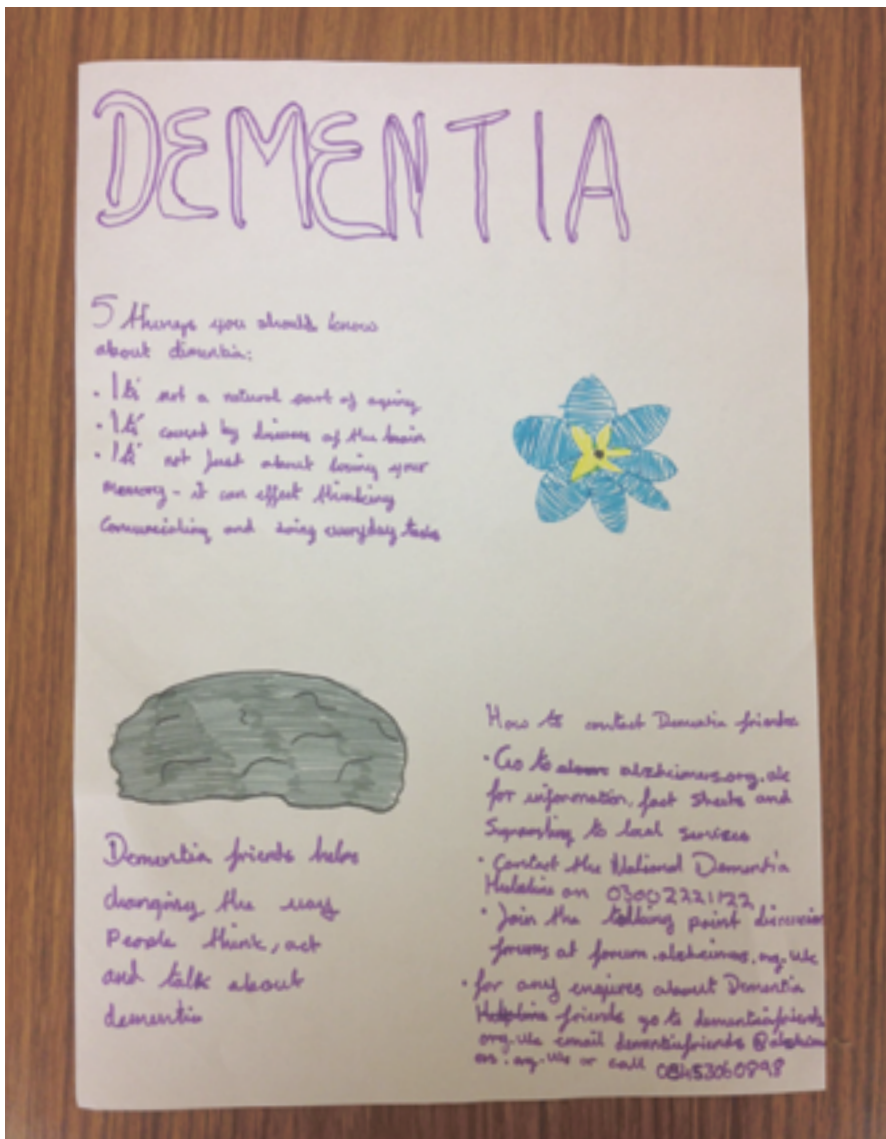 DEMENTIA
5 things you should know
about dimentia:
· It's not a natural part of ageing
· It's caused by diseases of the brain
· It's not just about losing your
memory - it can effect thinking
comunicating and doing everyday tasks
Dementia friends helps
changing the way
People think, act
and talk about
dementia
How to contact Dementia friends
· Go to alzheimers.org.uk
for information, fact sheets and
Signposting to local services
· Contact the National Dementia
Helpline on 03002221122
· Join the talking point discussion
forums at forum.alzheimers.org.uk
· for any enquires about Dementia
friends go to dementiafriends.
org.uk email dementiafriends@alzheim
ers.org.uk or call 08453060898